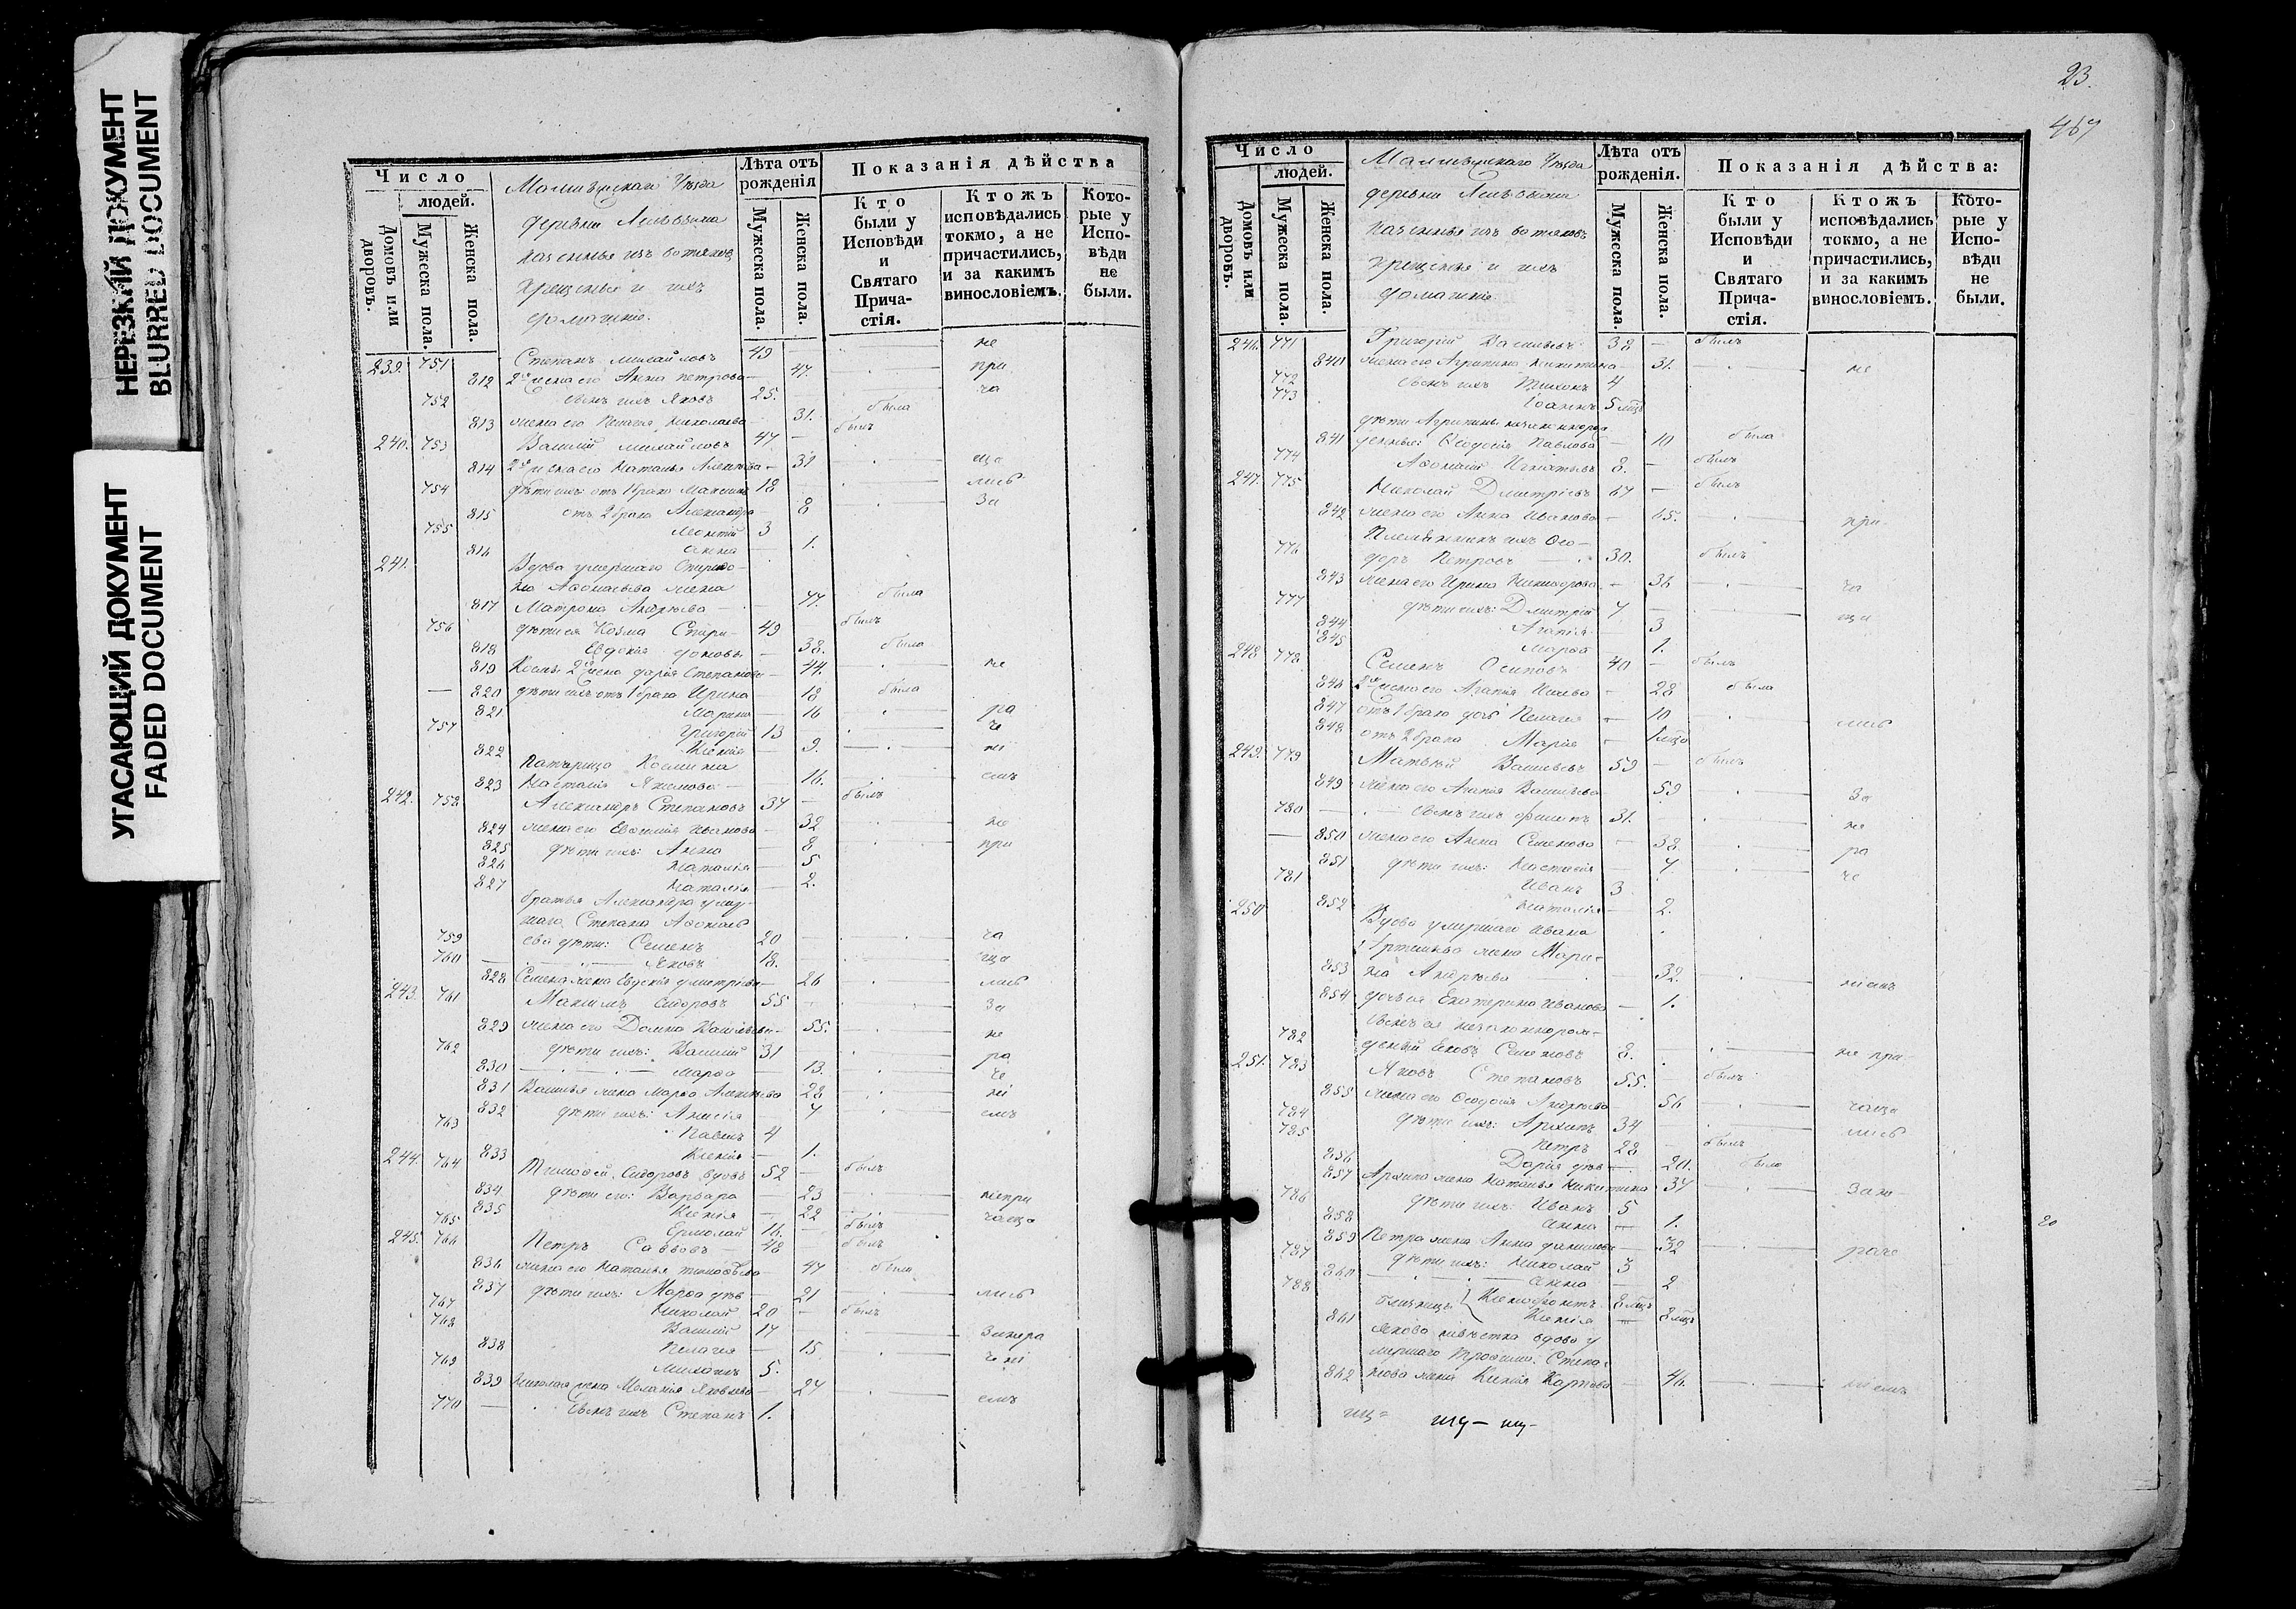 НЕРЕЗКИЙ ДОКУМЕНТ
BLURRED DOCUMENT
УГАСАЮЩИЙ ДОКУМЕНТ
FADED DOCUMENT
Число
людей.
Домовъ или дворовъ.
Мужеска пола.
Женска пола.
Малмыжскаго уѣзда
деревни
из вотяковъ
крещеные и ихъ
домашніе.
Лѣта отъ рожденія
Мужеска пола.
Женска пола.
Показанія дѣйства
Кто были у Исповѣди и Святаго Причастія.
Ктожъ исповѣдались токмо, а не причастились, и за какимъ винословіемъ.
Которые у Исповѣди не были.
239. 751 Степанъ Михайловъ 49 не
812 2я жена его Анна Петрова 47. при
752 сынъ ихъ Яковъ 25. ча
813 жена его Николаева 31. была
240. 753 Василій Михайловъ 47 былъ
814 2я жена его Наталья 31 ща
754 дѣти ихъ: отъ 1 брака Максимъ 18 лись
815 отъ 2 брака Александра 8 за
755 3
816 Анна 1.
241. Вдова умершаго
жена
817 Матрона Андреева 77. была
756 дѣти ея Козма 49 былъ
818 Евдокія 38. была
819 Козмы 2я жена Дарія Степанова 44. не
820 дѣти ихъ отъ 1 брака Ирина 18 была
821 Марина 16 ра
757 Григорій 13 че
822 Ксенія 9. ні
823 Настасія Якимова 16. емъ
242. 758 Александръ Степановъ 37 былъ
824 жена его Иванова 32 не
825 дѣти ихъ: Анна 8 при
826 Наталія 5
827 Наталія 2.
братья Александра
Степана
759 дѣти: Семенъ 20 ча
760 Яковъ 18. ща
828 Семена жена Евдокія Дмитріева 26 лись
243. 761 Максимъ Сидоровъ 55 за
829 жена его Домна Васильева 55. не
762 дѣти ихъ: Василій 31 ра
830 Марѳа 13. че
831 Василья жена Марѳа Алексѣева 28 ні
832 дѣти ихъ: Анисія 7 емъ
763 Павелъ 4
833 Ксенія 1.
244. 764 Тимоѳей Сидоровъ вдовъ 52 былъ
834 дѣти его: Варвара 23 непри
835 Ксенія 22 чаща
765 Ермолай 16. былъ
245. 766 Петръ Саввовъ 48 былъ
836 жена его Наталья Тимоѳеева 47 была
837 дѣти ихъ: Марѳа дѣв 21 лись
767 Николай 20 былъ
768 Василій 17 Занера
838 Пелагея 15 чені
769 Михаилъ 5.
839 Николая жена Меланія Яковлева 27 емъ
770 сынъ ихъ Степанъ 1.
23.
467
Число
людей.
Домовъ или дворовъ.
Мужеска пола.
Женска пола.
Малмыжскаго уѣзда
деревни
изъ вотяковъ
крещеные и ихъ
домашніе.
Лѣта отъ рожденія.
Мужеска пола.
Женска пола.
Показанія дѣйства:
Кто были у Исповѣди и Святаго Причастія.
Ктожъ исповѣдались токмо, а не причастились, и за какимъ винословіемъ.
Которые у Исповѣди не были.
246. 771 Григорій Васильевъ 38 былъ
840 жена его Агрипина Никитина 31. не
772 сынъ ихъ Тихонъ 4
773 Іоаннъ 5 мцъ
дѣти Агрипины незаконнорож
841 денные: Ѳеодосія Павлова 10 была
774 Игнатьевъ 8. былъ
247. 775 Николай Дмитріевъ 67 былъ
842 жена его Анна Иванова 65. при
Племянникъ ихъ Ѳео-
776 доръ Петровъ 30. былъ
843 жена его Ирина Никифорова 36 ча
777 дѣти ихъ: Дмитрій 7 ща
844 Агапія 3
845 Марѳа 1.
248 778. Семенъ Осиповъ 40 былъ
846 2я жена его Агапія 28 была
847 отъ 1 брака дочь Пелагея 10 лись
848 отъ 2 брака Марія 1 мцъ
249. 779 Матвѣй Васильевъ 59 былъ
849 жена его Агапія Васильева 59 за
780 сынъ ихъ Филипъ 31. не
850 жена его Анна Семенова 38 ра
851 дѣти ихъ: Настасія 7. че
781 Иванъ 3
852 Наталія 2.
250 Вдова умершаго Ивана
жена Мари-
853 на Андреева 32 ніемъ
854 дочь ея Екатерина Иванова 1.
сынъ ея незаконнорож-
782 денный Семеновъ 8. не при
251. 783 Яковъ Степановъ 55. былъ
855 жена его Ѳеодосія Андреева 56 чаща
784 дѣти ихъ: Архипъ 34 лись
785 Петръ 28 былъ
856 Дарія дѣв 20. была
857 Архипа жена Наталья Никитина 37 Зане
786 дѣти ихъ: Иванъ 5
858 Анна 1.
859 Петра жена Анна 32 раче
787 дѣти ихъ: Николай 3
860 Анна 2
788 близнецы Ксенофонтъ 8 мцъ
861 Ксенія 8 мцъ
Якова невѣстка вдова у
мершаго Степа-
862 нова жена Ксенія Карпова 46. ніемъ
20